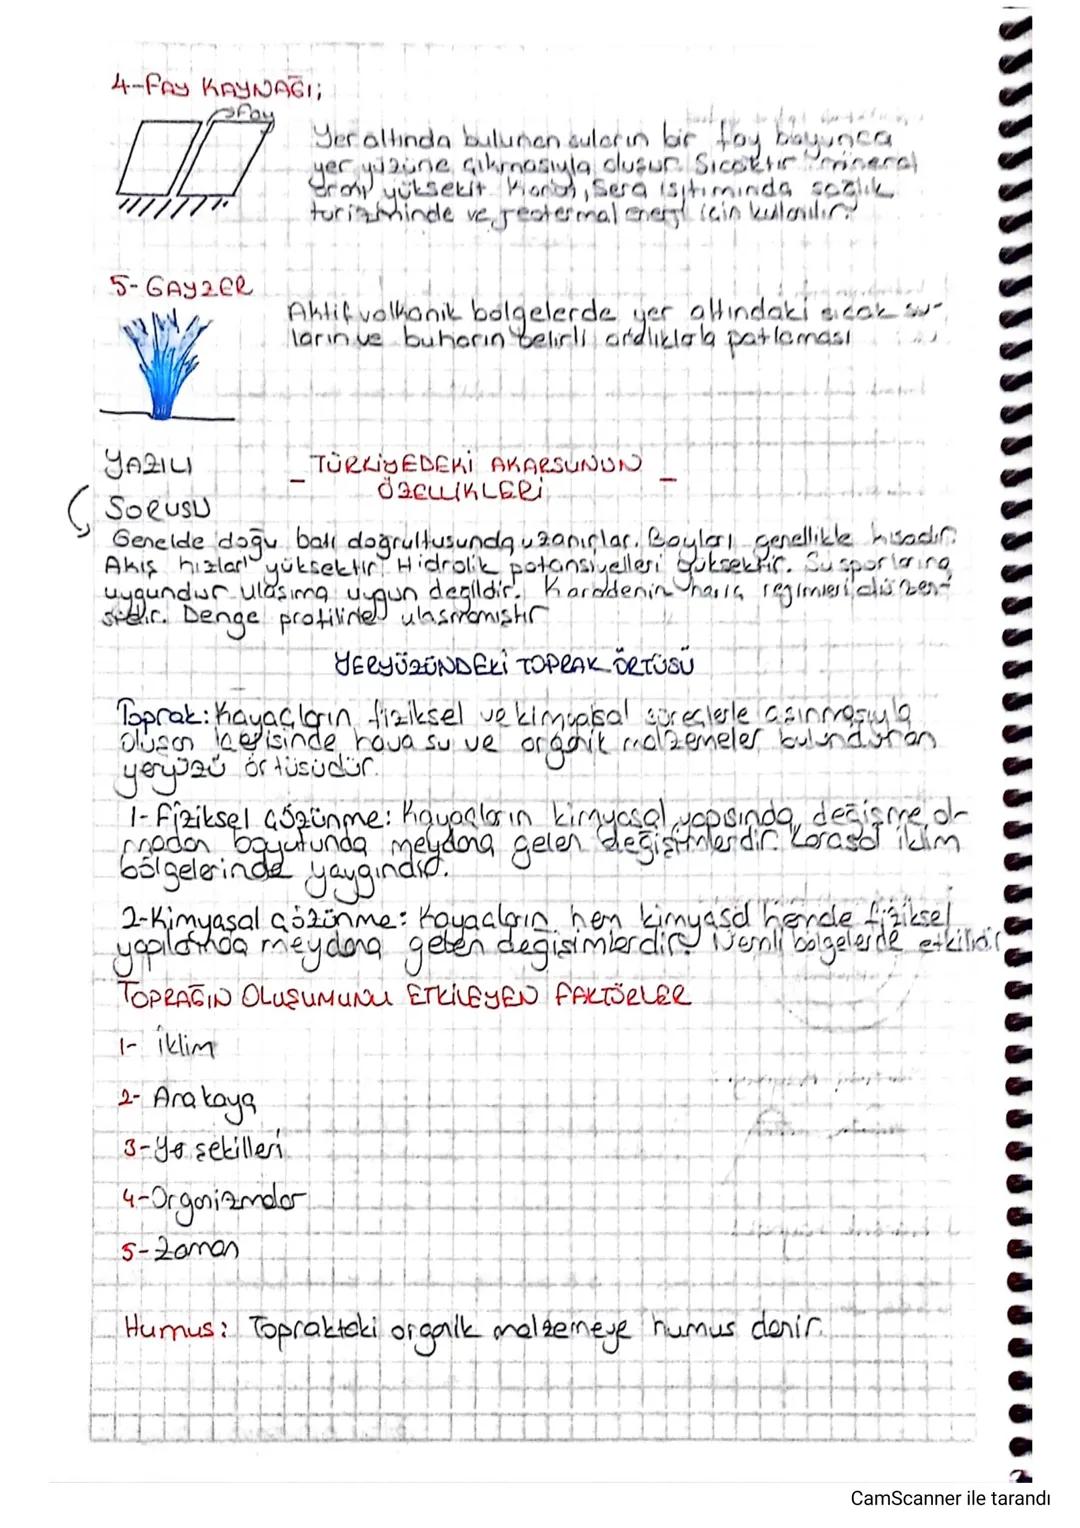 4-FAY KAYNAĞI;
Fay
Yer altında bulunan suların bir fay boyunca
yer yüzüne çıkmasıyla oluşur. Sıcaktır mineral
oranı yüksektir. Sera ısıtımında sağlık
turizminde ve jeotermal enerji için kullanılır.
5- GAYZER
Aktif volkanik bölgelerde yer altındaki sıcak su-
ların ve buharın belirli aralıklarla patlaması
YAZILI
SORUSU
- TÜRKİYEDEKİ AKARSUNUN -
ÖZELLİKLERİ
Genelde doğu batı doğrultusunda uzanırlar. Boyları genellikle kısadır.
Akış hızları yüksektir. Hidrolik potansiyelleri yüksektir. Su sporlarına
uygundur ulaşıma uygun değildir. Karadenin hariç rejimleri düzen-
sizdir. Denge profiline ulaşmamıştır
YERYÜZÜNDEKİ TOPRAK ÖRTÜSÜ
Toprak: Kayaçların fiziksel ve kimyasal süreçlerle aşınmasıyla
oluşan içerisinde hava su ve organik malzemeler bulunduran
yeryüzü örtüsüdür.
1- Fiziksel Çözünme: Kayaçların kimyasal yapısında değişme ol-
madan boyutunda meydana gelen değişimlerdir. Karasal iklim
bölgelerinde yaygındır.
2-Kimyasal Çözünme: Kayaçların hem kimyasal hemde fiziksel
yapılarında meydana gelen değişimlerdir. Nemli bölgelerde etkilidir
TOPRAĞIN OLUŞUMUNU ETKİLEYEN FAKTÖRLER
1- İklim
2- Ana kaya
3- Yer şekilleri
4-Organizmalar
5- Zaman
Humus: Topraktaki organik malzemeye humus denir.
CamScanner ile tarandı